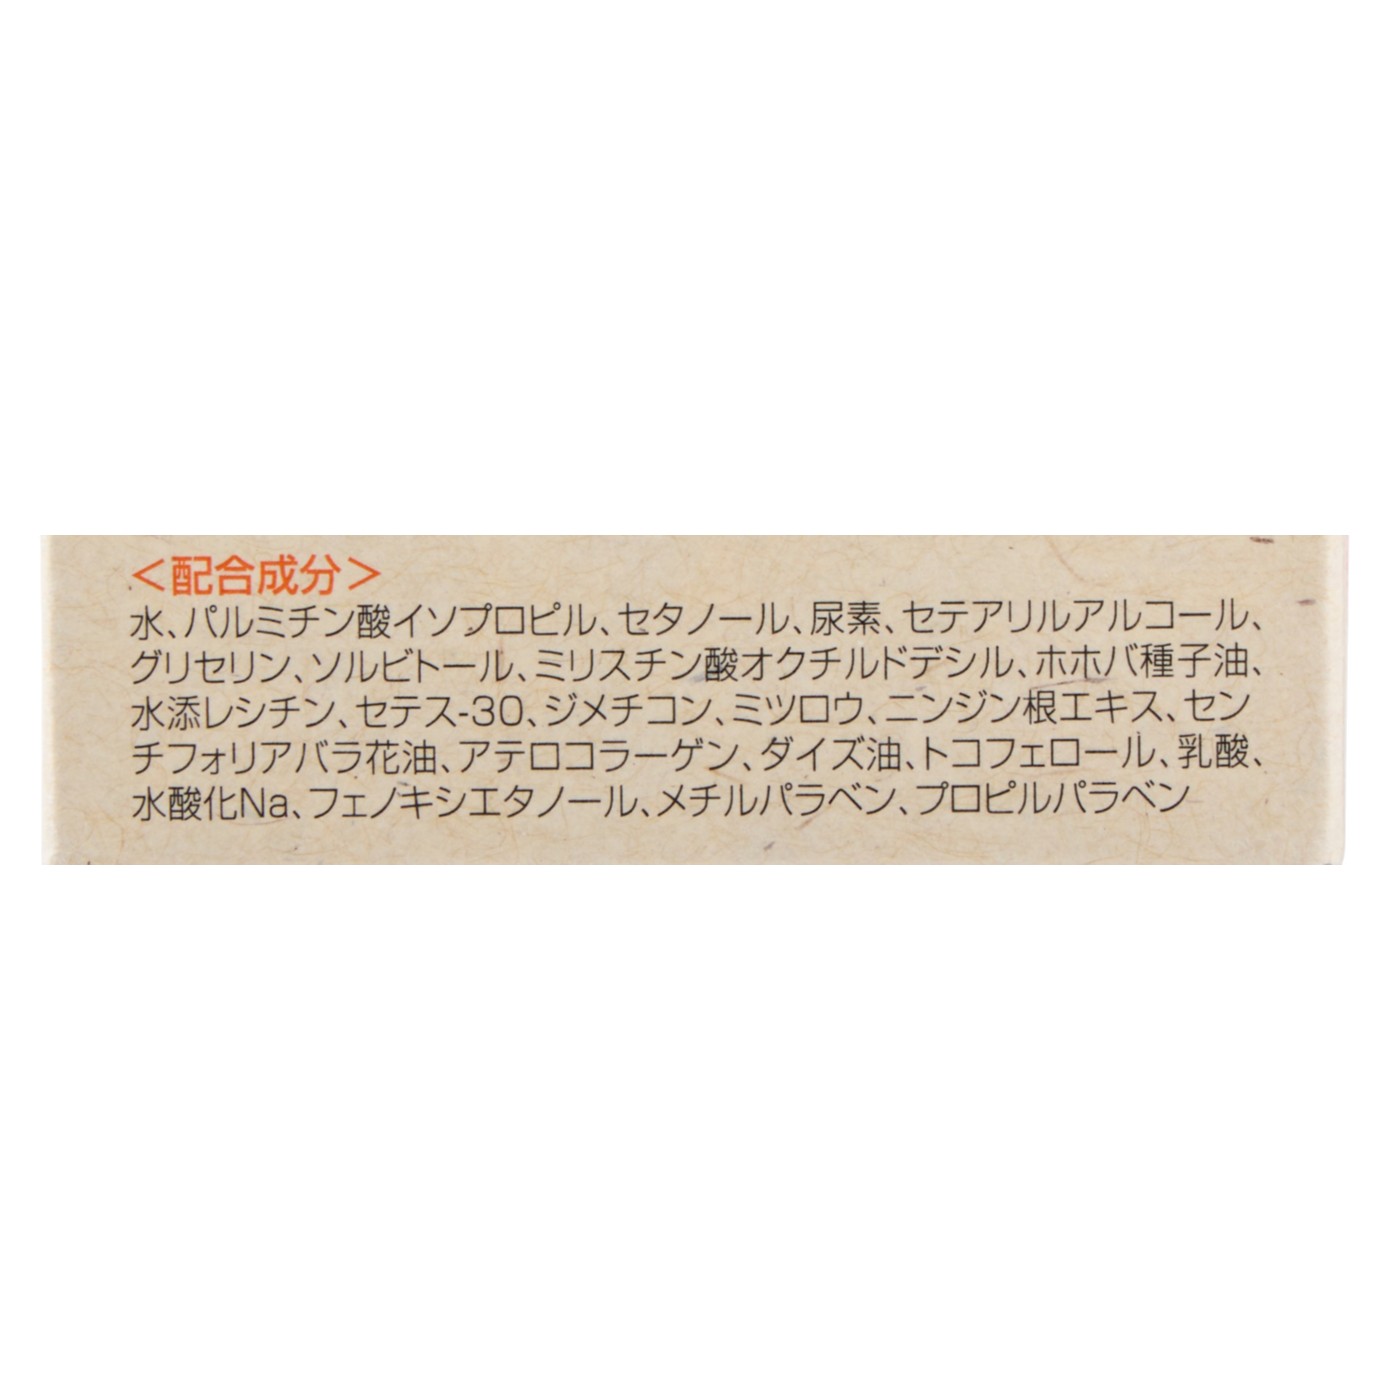 ＜配合成分＞
水、パルミチン酸イソプロピル、セタノール、尿素、セテアリルアルコール、
グリセリン、ソルビトール、ミリスチン酸オクチルドデシル、ホホバ種子油、
水添レシチン、セテス-30、ジメチコン、ミツロウ、ニンジン根エキス、セン
チフォリアバラ花油、アテロコラーゲン、ダイズ油、トコフェロール、乳酸、
水酸化Na、フェノキシエタノール、メチルパラベン、プロピルパラベン